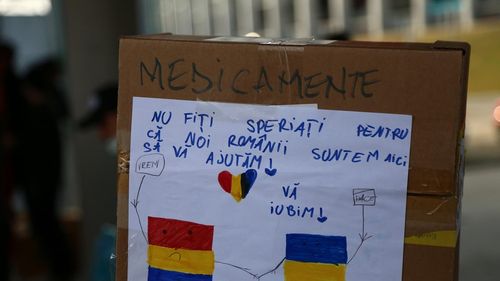 MEDICAMENTE
NU FIȚI SPERIAȚI PENTRU
CĂ NOI ROMÂNII SUNTEM AICI
SĂ VĂ AJUTĂM!
VĂ
IUBIM!
VREM
PACE